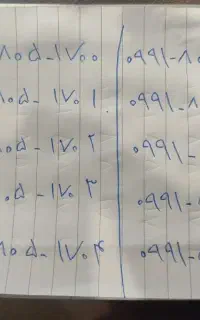 ۸۰۵-۱۷۰۰ ۰۹۹۱-۸۰
۸۰۵-۱۷۰۱ ۰۹۹۱-۸
۰۵-۱۷۰۲ ۰۹۹۱-
۰۵-۱۷۰۳ ۰۹۹۱-
۸۰۵-۱۷۰۴ ۰۹۹۱-